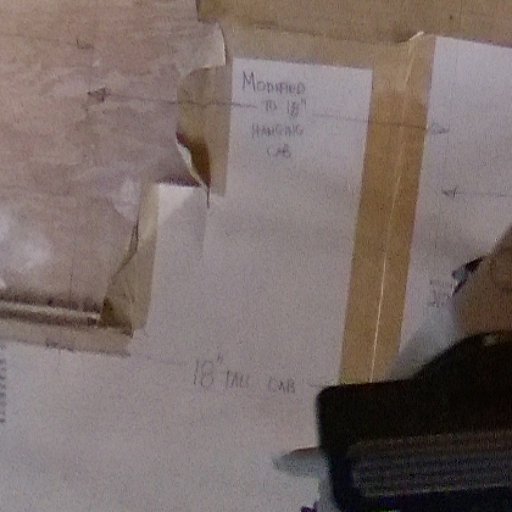 MODIFIED
TO 18"
HANGING
CAB
18" TALL CAB